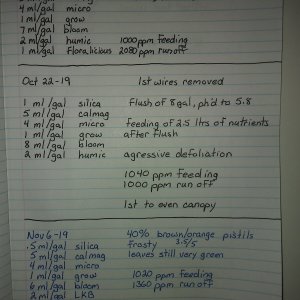 4 ml/gal micro
1 ml/gal grow
7 ml/gal bloom
2 ml/gal humic 1000 ppm feeding
1 ml/gal Floralicious 2080 ppm runoff
Oct 22-19 1st wires removed
1 ml/gal silica flush of 8 gal, ph'd to 5.8
5 ml/gal calmag
4 ml/gal micro feeding of 2.5 ltrs of nutrients
1 ml/gal grow after flush
8 ml/gal bloom
2 ml/gal humic agressive defoliation
1040 ppm feeding
1000 ppm run off
1st to even canopy
Nov 6-19 40% brown/orange pistils
.5 ml/gal silica frosty 3.5/5
5 ml/gal calmag leaves still very green
4 ml/gal micro
1 ml/gal grow 1020 ppm feeding
6 ml/gal bloom 1360 ppm runoff
2 ml/gal LKB